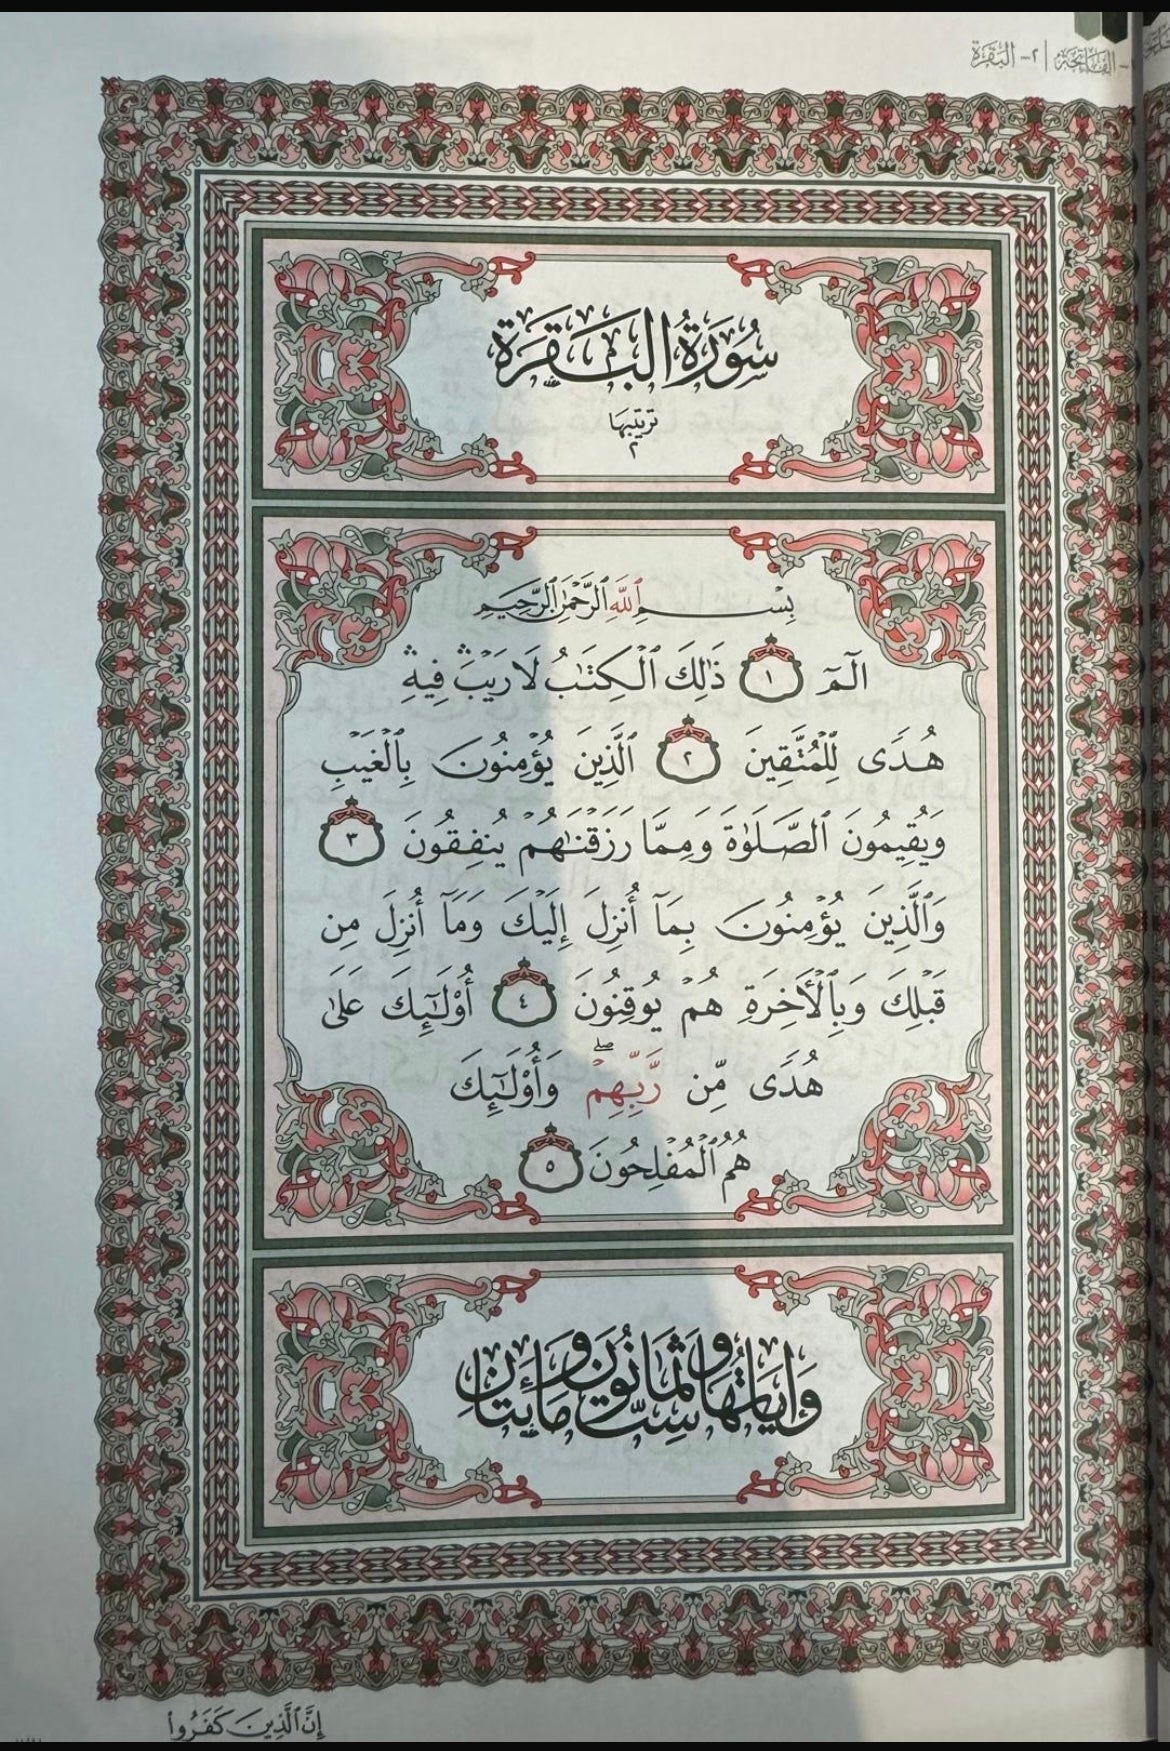 الفاتحة | ٢- البقرة
سُورَةُ البَقَرَةِ
ترتيبها
٢
بِسْمِ ٱللَّهِ ٱلرَّحْمَٰنِ ٱلرَّحِيمِ
الٓمٓ ١ ذَٰلِكَ ٱلْكِتَٰبُ لَا رَيْبَ ۛ فِيهِ ۛ
هُدًى لِّلْمُتَّقِينَ ٢ ٱلَّذِينَ يُؤْمِنُونَ بِٱلْغَيْبِ
وَيُقِيمُونَ ٱلصَّلَوٰةَ وَمِمَّا رَزَقْنَٰهُمْ يُنفِقُونَ ٣
وَٱلَّذِينَ يُؤْمِنُونَ بِمَآ أُنزِلَ إِلَيْكَ وَمَآ أُنزِلَ مِن
قَبْلِكَ وَبِٱلْأَخِرَةِ هُمْ يُوقِنُونَ ٤ أُوْلَٰٓئِكَ عَلَىٰ
هُدًى مِّن رَّبِّهِمْ ۖ وَأُوْلَٰٓئِكَ
هُمُ ٱلْمُفْلِحُونَ ٥
وَآيَاتُهَا سِتٌّ وَثَمَانُونَ وَمِائَتَانِ
إِنَّ ٱلَّذِينَ كَفَرُوا۟